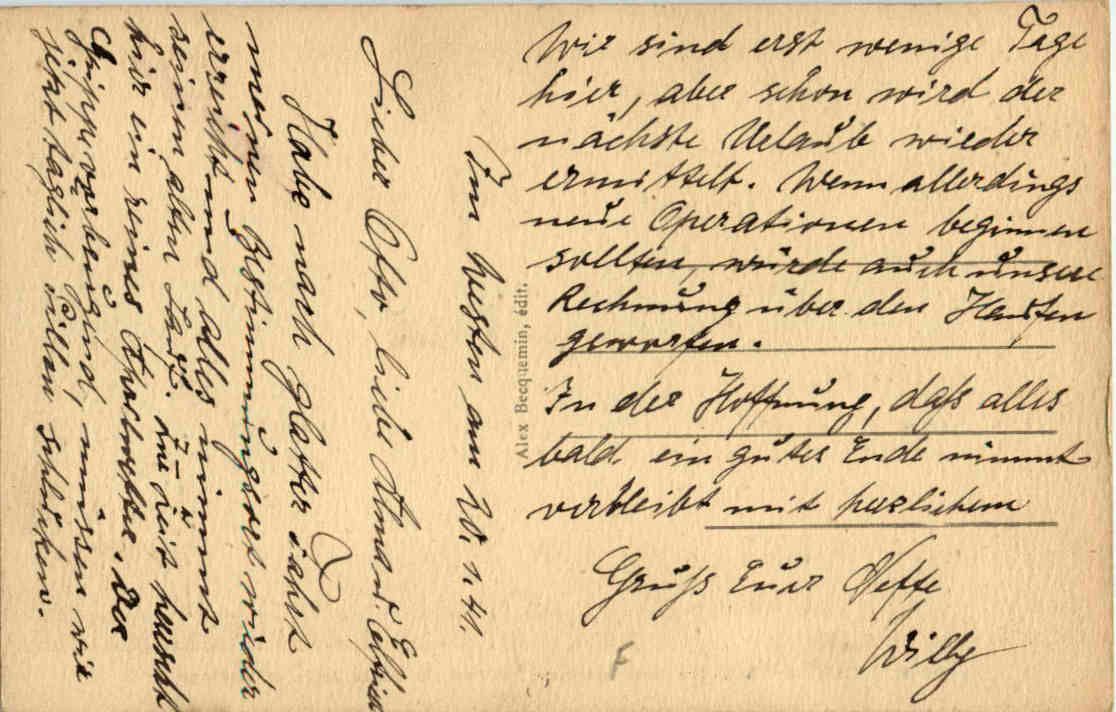 Im Westen am 20.1.41.
Lieber Otto, liebe Irma u. Elfried
Habe nach glatter Fahrt
meinen Bestimmungsort wieder
erreicht und alles nimmt
seinen alten Lauf. Zur Zeit herrscht
hier ein reines Aprilwetter. Der
Grippe vorbeugend, müssen wir
jetzt täglich Pillen schlucken.
Wir sind erst wenige Tage
hier, aber schon wird der
nächste Urlaub wieder
ermittelt. Wenn allerdings
neue Operationen beginnen
sollten, würde auch unsere
Rechnung über den Haufen
geworfen.
In der Hoffnung, daß alles
bald ein gutes Ende nimmt
verbleibt mit herzlichem
Gruß Euer Neffe
Willy
Alex Becquemin, édit.
F